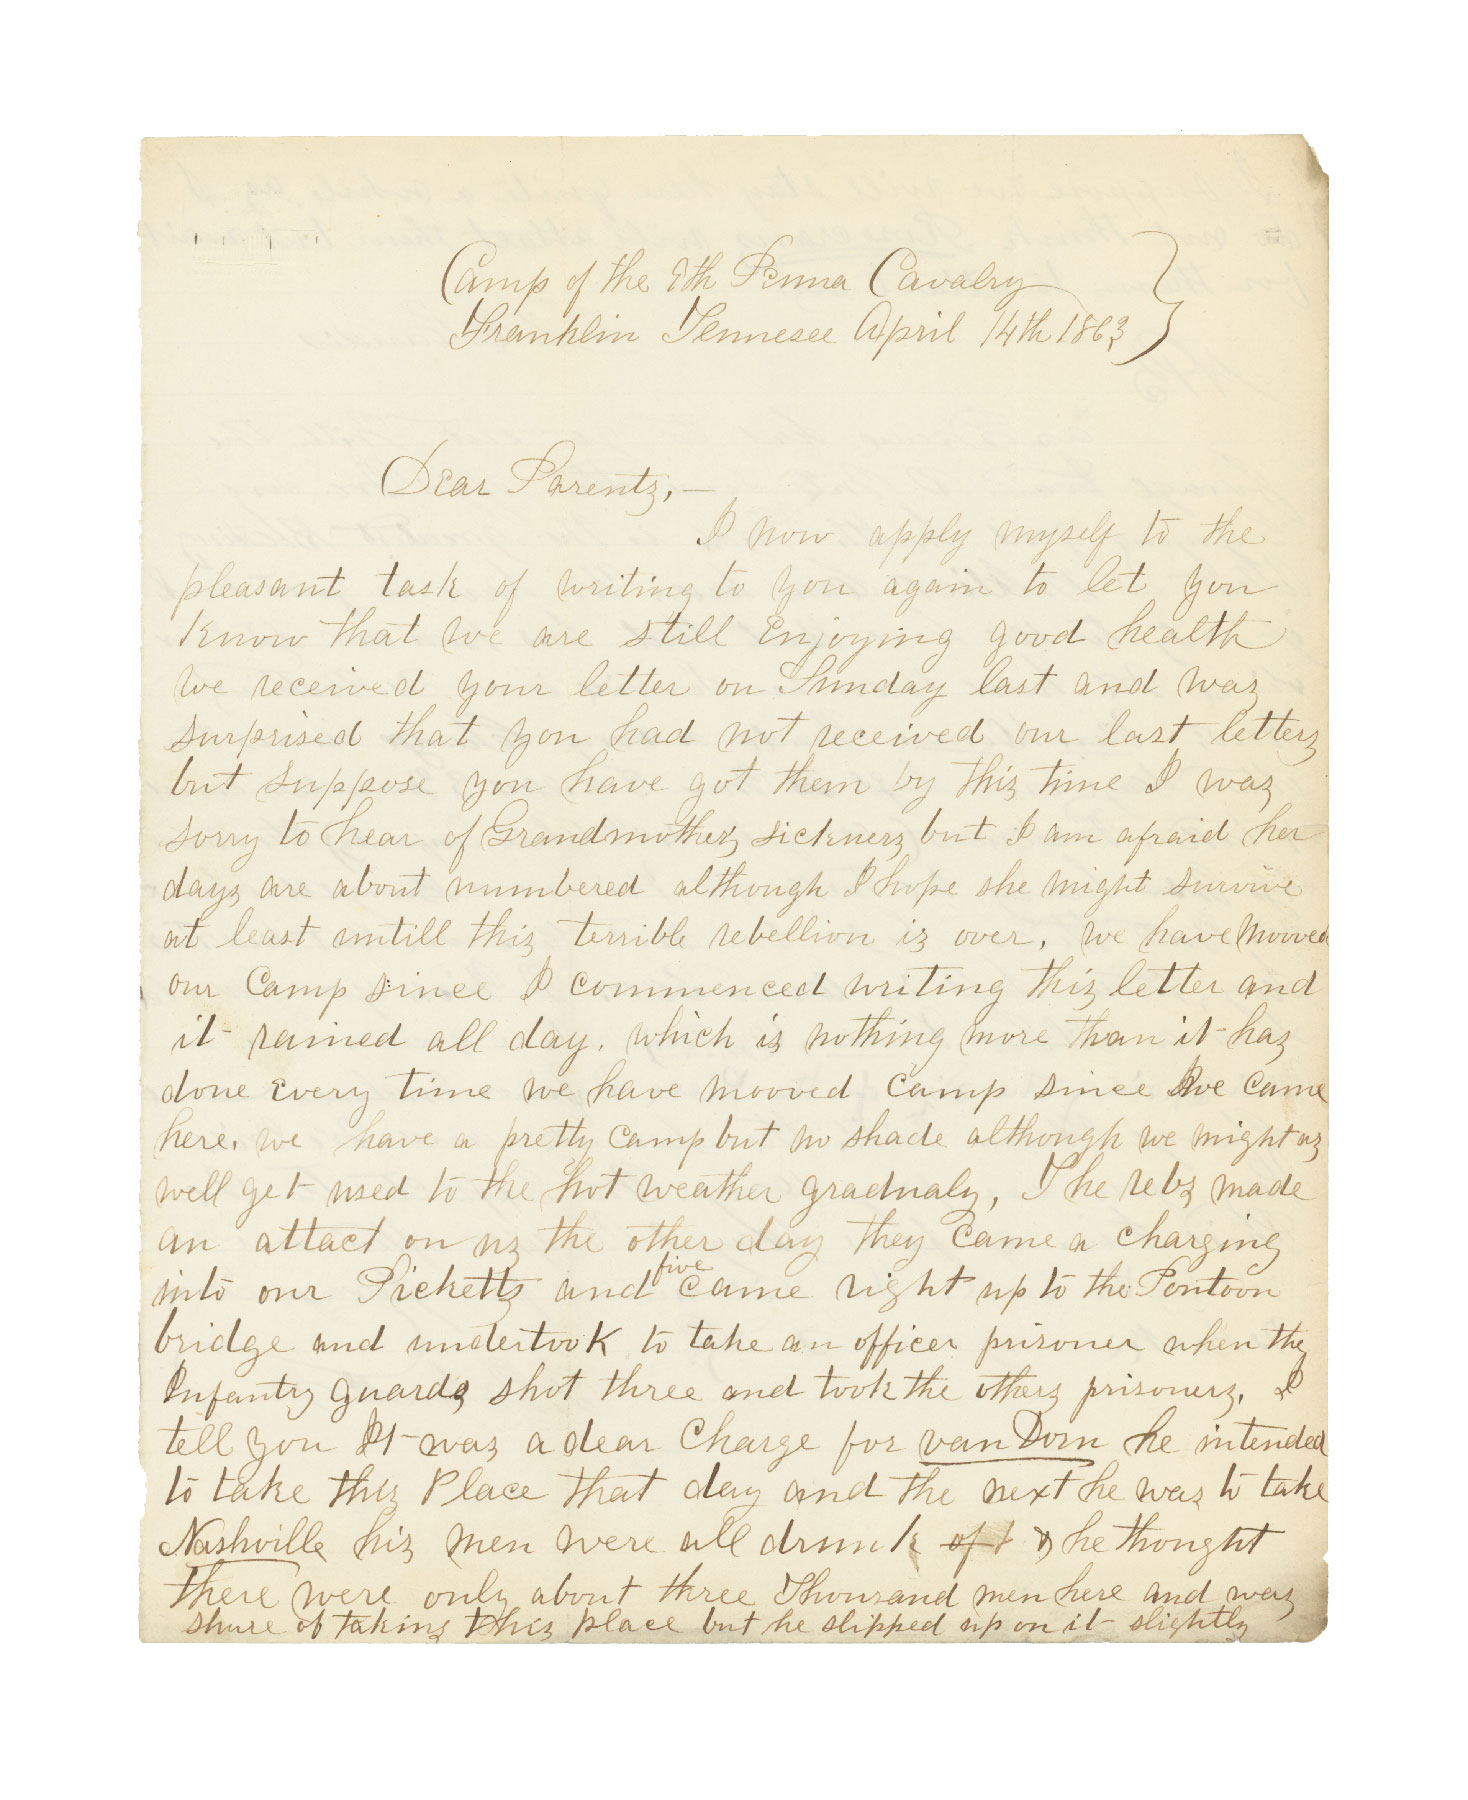 Camp of the 9th Penna Cavalry
Franklin Tennesee April 14th 1863
Dear Parents,—
I now apply myself to the
pleasant task of writing to you again to let you
know that we are still Enjoying good health
we received your letter on Sunday last and was
surprised that you had not received our last letters
but suppose you have got them by this time I was
sorry to hear of Grandmothers sickness but I am afraid her
days are about numbered although I hope she might survive
at least untill this terrible rebellion is over, we have mooved
our Camp since I commenced writing this letter and
it rained all day, which is nothing more than it has
done Every time we have mooved Camp since we Came
here, we have a pretty Camp but no shade although we might as
well get used to the hot weather gradualy, The rebs made
an attact on us the other day they Came a Charging
into our Picketts and five Came right up to the Pontoon
bridge and undertook to take an officer prisoner when the
Infantry guards shot three and took the others prisoners, I
tell you It was a dear Charge for van Dorn he intended
to take this Place that day and the next he was to take
Nashville his men were all drunk of t & he thought
there were only about three Thousand men here and was
shure of taking this place but he slipped up on it slightly